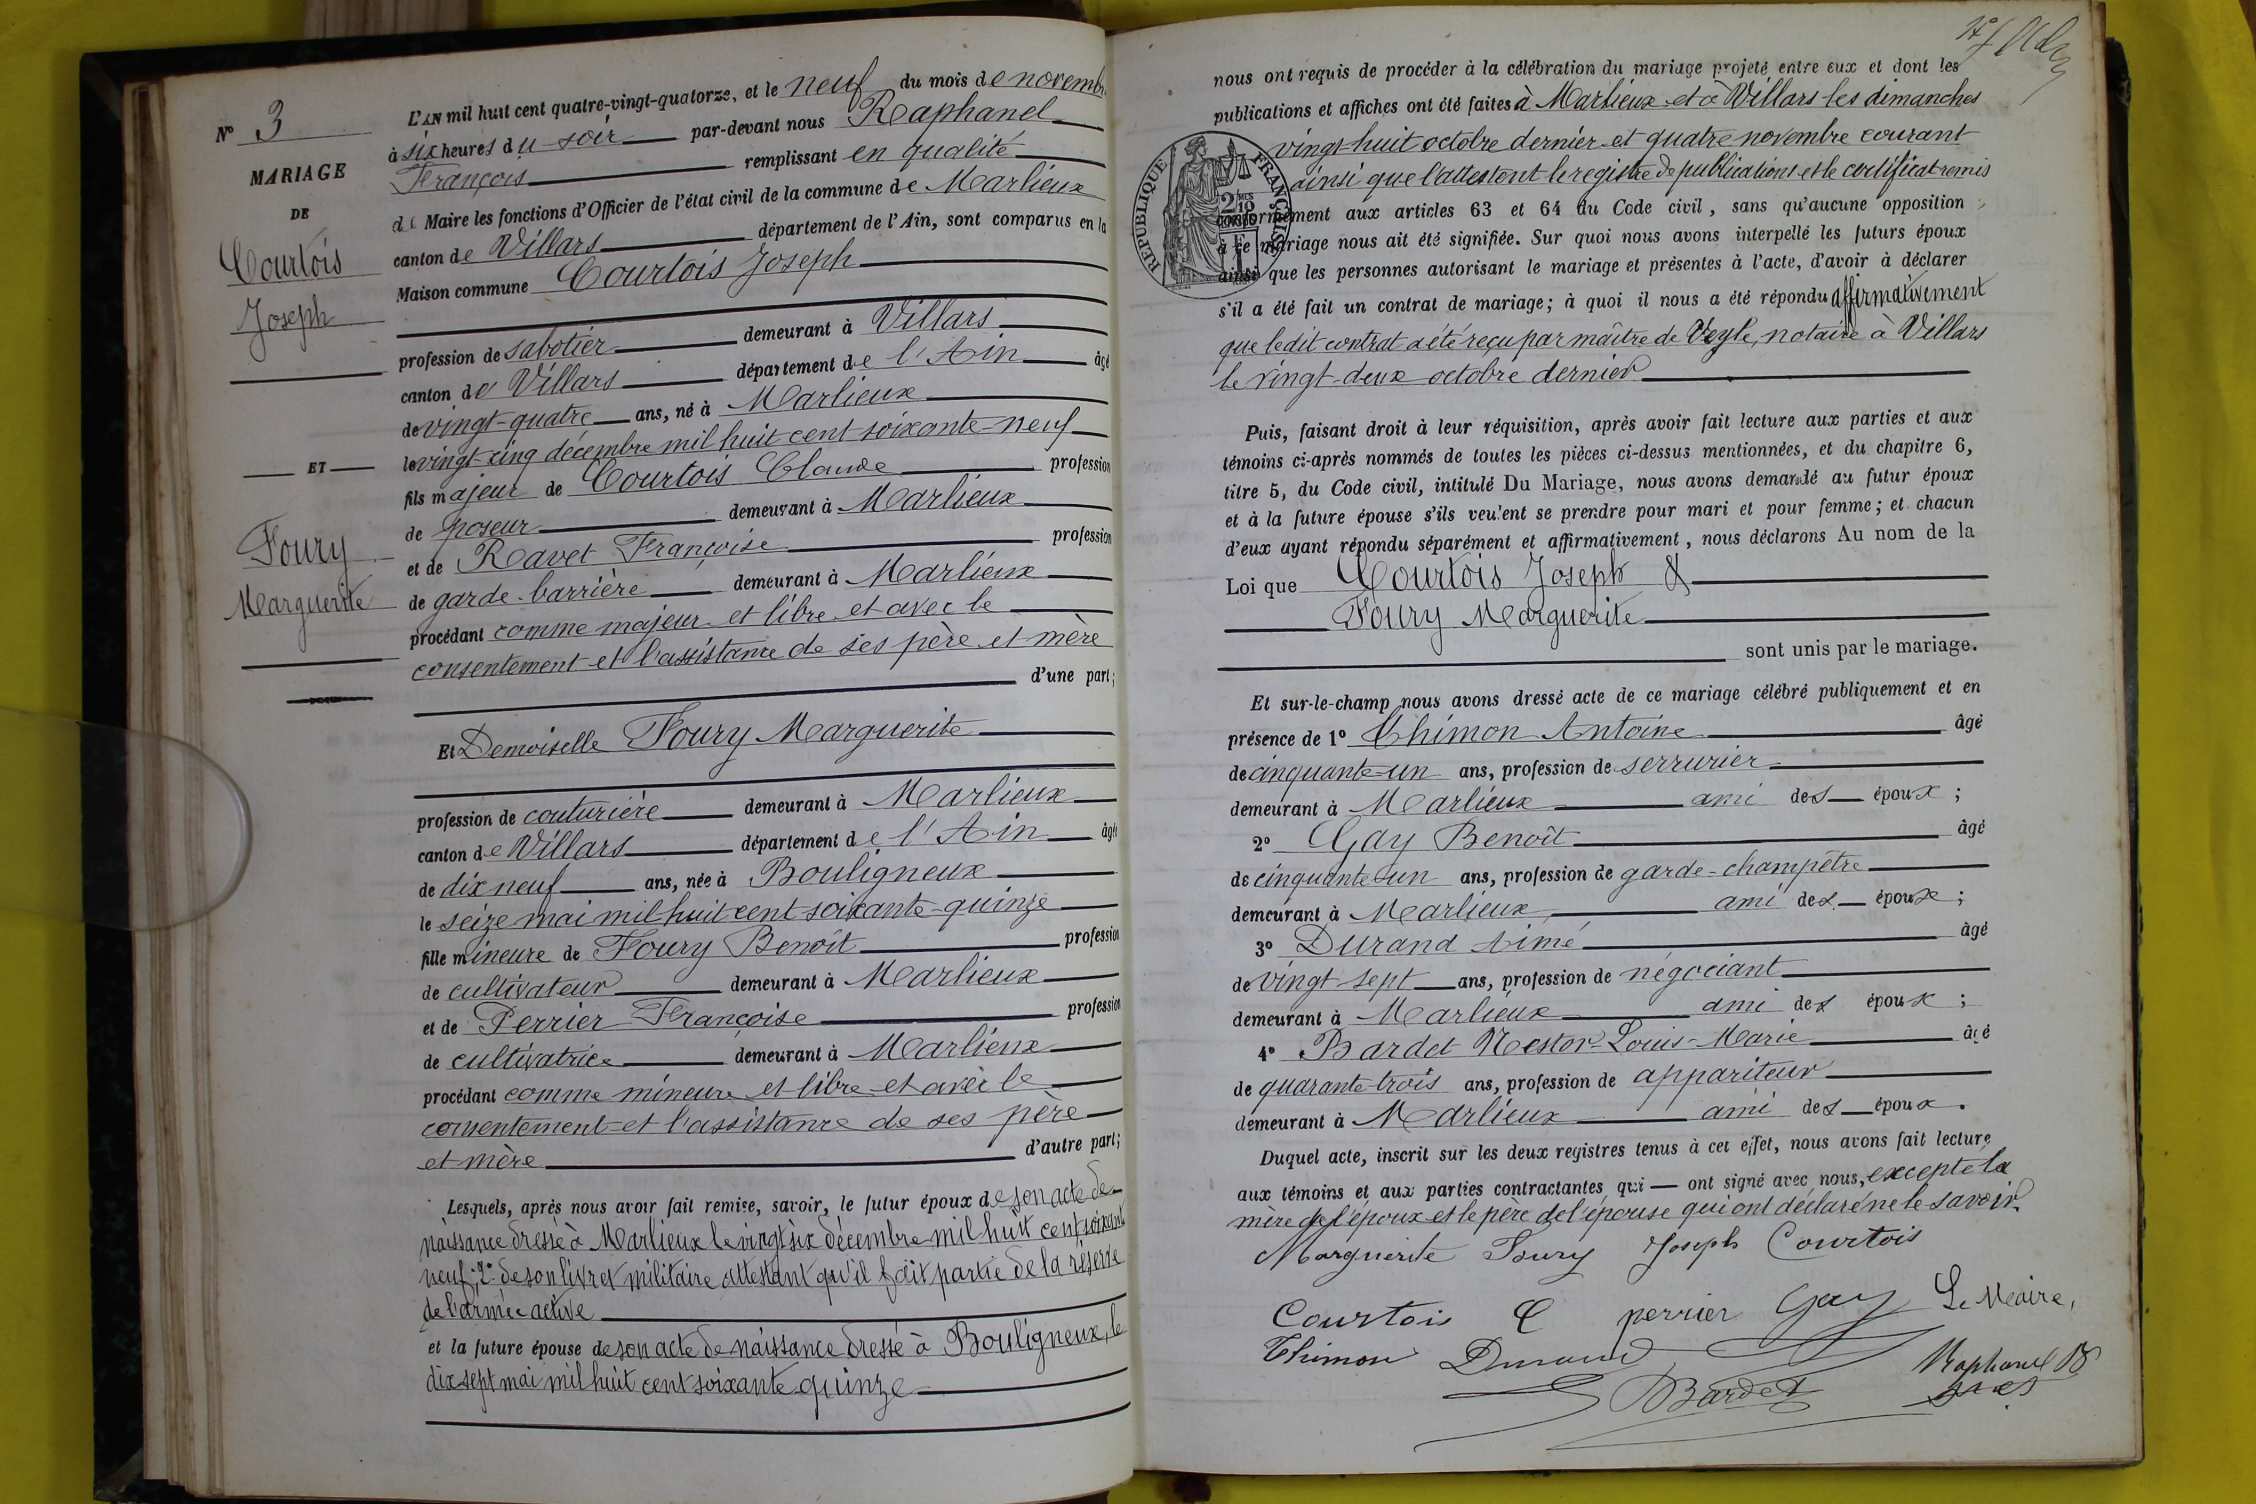 N° 3
MARIAGE
DE
Courtois
Joseph
ET
Foury
Marguerite
L'AN mil huit cent quatre-vingt-quatorze, et le neuf du mois de novembre
à six heures du soir par-devant nous Raphanel
François remplissant en qualité
de Maire les fonctions d'Officier de l'état civil de la commune de Marlieux
canton de Villars département de l'Ain, sont comparus en la
Maison commune Courtois Joseph
profession de sabotier demeurant à Villars
canton de Villars département de l'Ain âgé
de vingt-quatre ans, né à Marlieux
le vingt-cinq décembre mil huit cent soixante-neuf
fils majeur de Courtois Claude profession
de poseur demeurant à Marlieux
et de Ravet Françoise profession
de garde-barrière demeurant à Marlieux
procédant comme majeur et libre et avec le
consentement et l'assistance de ses père et mère
d'une part;
Et Demoiselle Foury Marguerite
profession de couturière demeurant à Marlieux
canton de Villars département de l'Ain âgée
de dix neuf ans, née à Bouligneux
le seize mai mil huit cent soixante-quinze
fille mineure de Foury Benoît profession
de cultivateur demeurant à Marlieux
et de Perrier Françoise profession
de cultivatrice demeurant à Marlieux
procédant comme mineure et libre et avec le
consentement et l'assistance de ses père
et mère d'autre part;
Lesquels, après nous avoir fait remise, savoir, le futur époux de son acte de
naissance dressé à Marlieux le vingt six décembre mil huit cent soixante
neuf; 2° de son livret militaire attestant qu'il fait partie de la réserve
de l'armée active
et la future épouse de son acte de naissance dressé à Bouligneux, le
dix sept mai mil huit cent soixante quinze
nous ont requis de procéder à la célébration du mariage projeté entre eux et dont les
publications et affiches ont été faites à Marlieux et à Villars les dimanches
vingt-huit octobre dernier et quatre novembre courant
ainsi que l'attestent le registre de publications et le certificat remis
RÉPUBLIQUE FRANÇAISE
conformément aux articles 63 et 64 du Code civil, sans qu'aucune opposition
à ce mariage nous ait été signifiée. Sur quoi nous avons interpellé les futurs époux
ainsi que les personnes autorisant le mariage et présentes à l'acte, d'avoir à déclarer
s'il a été fait un contrat de mariage; à quoi il nous a été répondu affirmativement
que ledit contrat a été reçu par maître de Veyle, notaire à Villars
le vingt-deux octobre dernier
Puis, faisant droit à leur réquisition, après avoir fait lecture aux parties et aux
témoins ci-après nommés de toutes les pièces ci-dessus mentionnées, et du chapitre 6,
titre 5, du Code civil, intitulé Du Mariage, nous avons demandé au futur époux
et à la future épouse s'ils veulent se prendre pour mari et pour femme; et chacun
d'eux ayant répondu séparément et affirmativement, nous déclarons Au nom de la
Loi que Courtois Joseph &
Foury Marguerite
sont unis par le mariage.
Et sur-le-champ nous avons dressé acte de ce mariage célébré publiquement et en
présence de 1° Thimon Antoine âgé
de cinquante-un ans, profession de serrurier
demeurant à Marlieux ami des époux;
2° Gay Benoît âgé
de cinquante-un ans, profession de garde-champêtre
demeurant à Marlieux ami des époux;
3° Durand Aimé âgé
de vingt-sept ans, profession de négociant
demeurant à Marlieux ami des époux;
4° Bardet Nestor-Louis-Marie âgé
de quarante-trois ans, profession de appariteur
demeurant à Marlieux ami des époux.
Duquel acte, inscrit sur les deux registres tenus à cet effet, nous avons fait lecture
aux témoins et aux parties contractantes qui ont signé avec nous, excepté la
mère de l'époux et le père de l'épouse qui ont déclaré ne le savoir.
Marguerite Foury Joseph Courtois
Courtois C perrier Gay Le Maire,
Thimon Durand Raphanel
Bardet